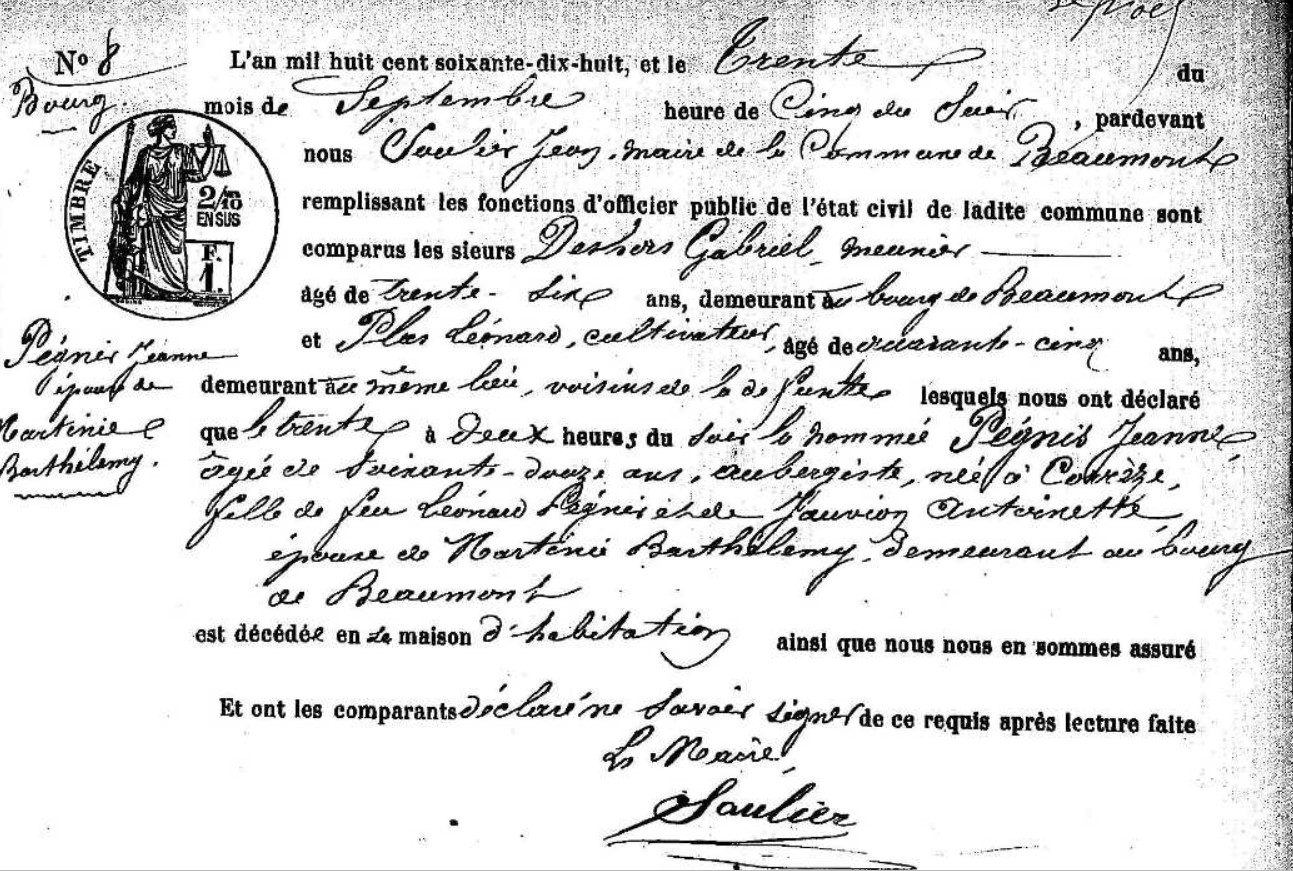 N° 8
Bourg.
L'an mil huit cent soixante-dix-huit, et le Trente du
mois de Septembre heure de Cinq du Soir, pardevant
nous Saulier Jean, maire de la Commune de Beaumont
remplissant les fonctions d'officier public de l'état civil de ladite commune sont
comparus les sieurs Deshors Gabriel, meunier
âgé de trente-six ans, demeurant au bourg de Beaumont
et Plas Léonard, cultivateur, âgé de quarante-cinq ans,
demeurant au même lieu, voisins de la défunte lesquels nous ont déclaré
que le trente à deux heures du soir la nommée Pégnis Jeanne,
âgée de soixante-douze ans, aubergiste, née à Corrèze,
fille de feu Léonard Pégnis et de Jauvion Antoinette,
épouse de Martinie Barthélemy, demeurant au bourg
de Beaumont
est décédée en sa maison d'habitation ainsi que nous nous en sommes assuré
Et ont les comparants déclaré ne savoir signer de ce requis après lecture faite
Le Maire,
Saulier
TIMBRE
2/10
EN SUS
F.
1.
Pégnis Jeanne
épouse de
Martinie
Barthélemy.